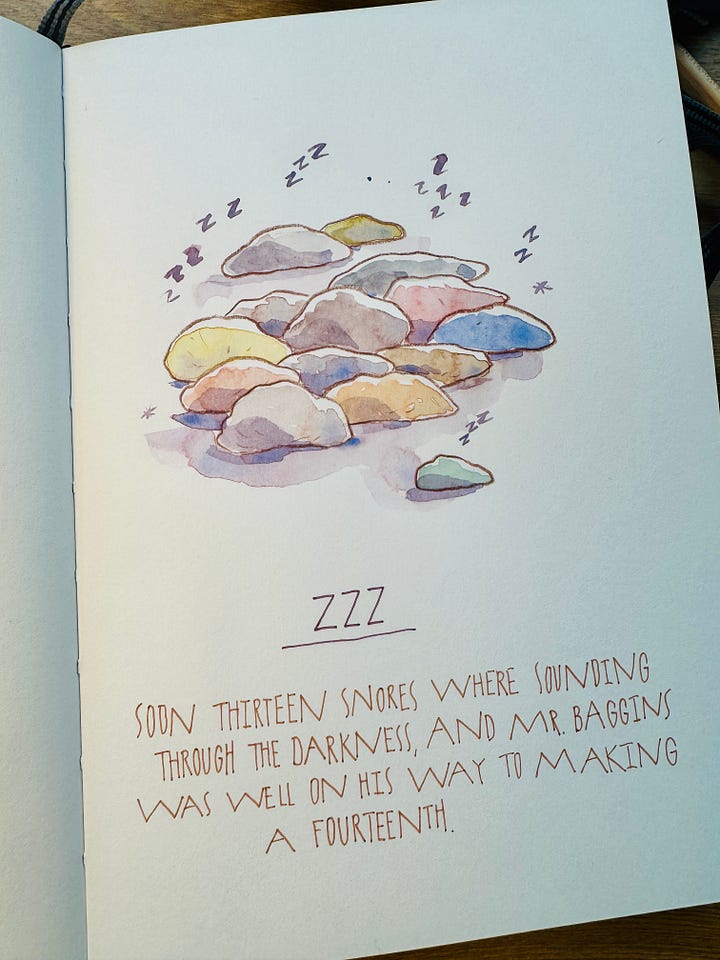 z z z
z
z z z z z
z z
z z z z
z z
z z z
ZZZ
SOON THIRTEEN SNORES WHERE SOUNDING
THROUGH THE DARKNESS, AND MR. BAGGINS
WAS WELL ON HIS WAY TO MAKING
A FOURTEENTH.